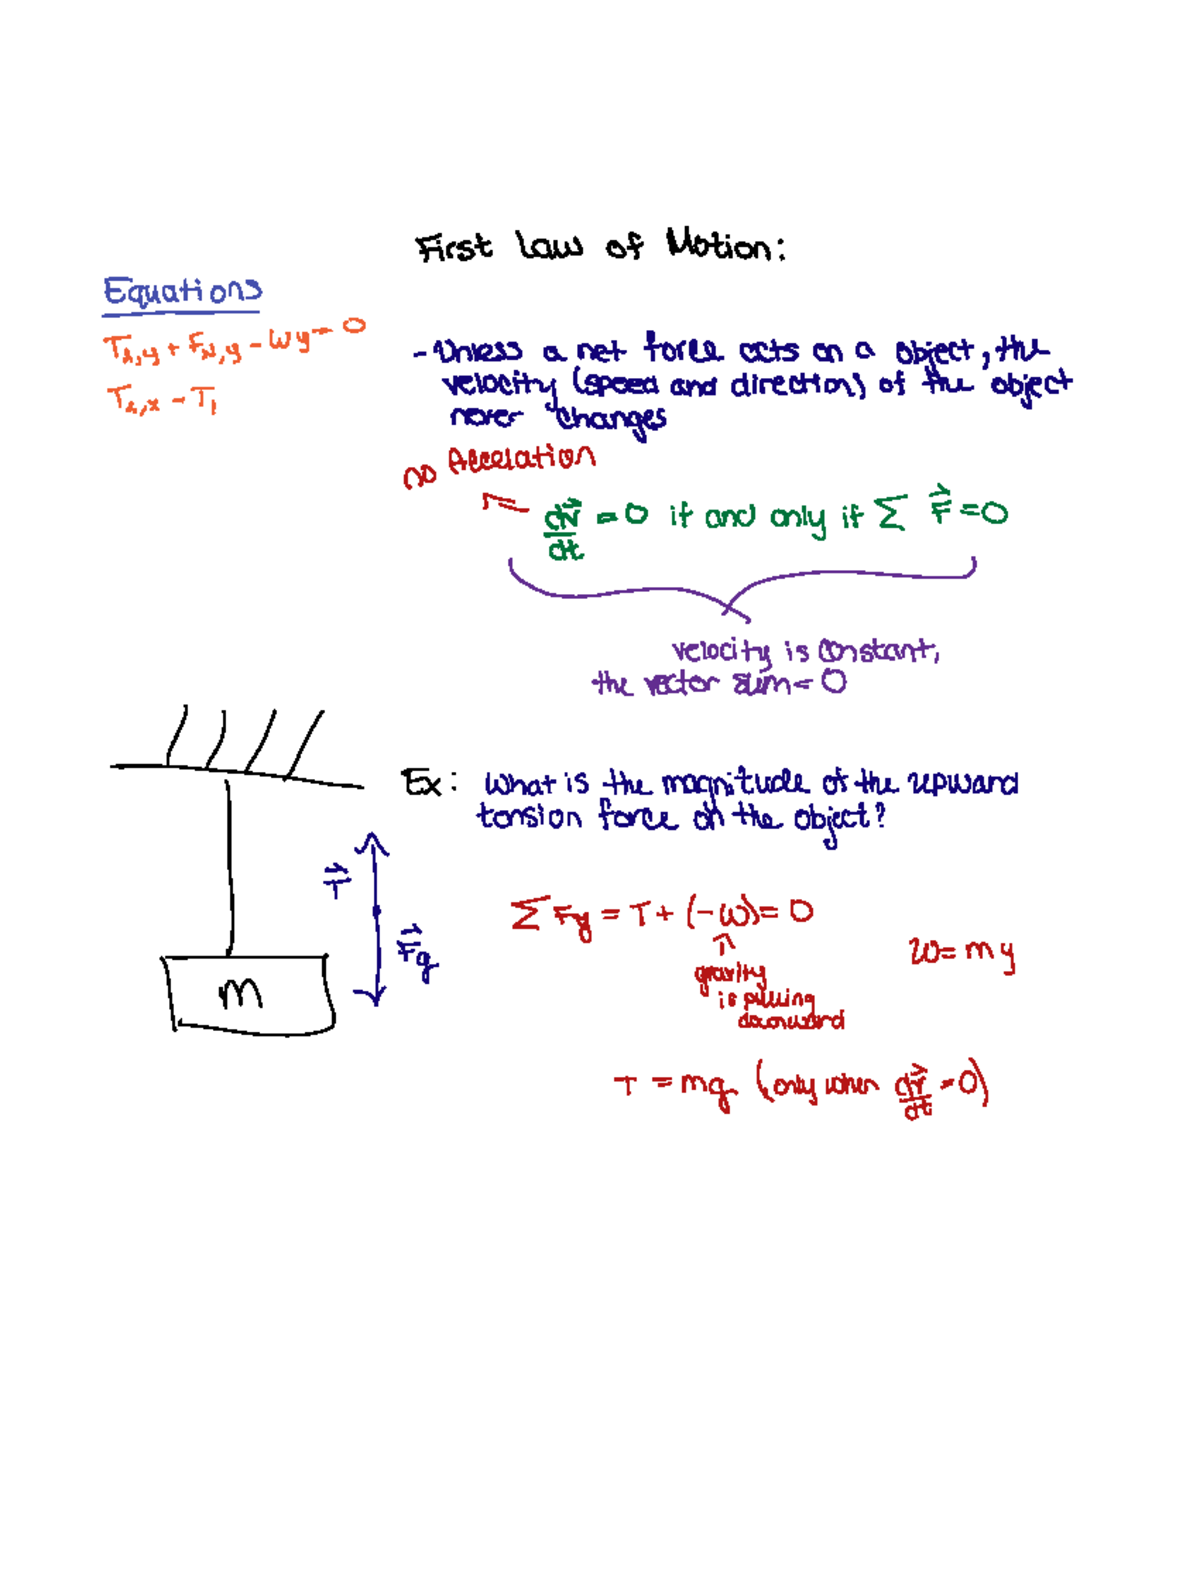 First Law of Motion:
Equations
T₂,y + F_N,y - Wy = 0
T₂,x - T₁
- Unless a net force acts on a object, the
velocity (speed and direction) of the object
never changes
no Accelation
dv⃗/dt = 0 if and only if Σ F⃗ = 0
velocity is constant,
the vector sum = 0
Ex: What is the magnitude of the upward
tension force on the object?
T⃗
F⃗g
m
ΣFy = T + (-w) = 0
gravity
is pulling
downward
w = mg
T = mg (only when dv⃗/dt = 0)